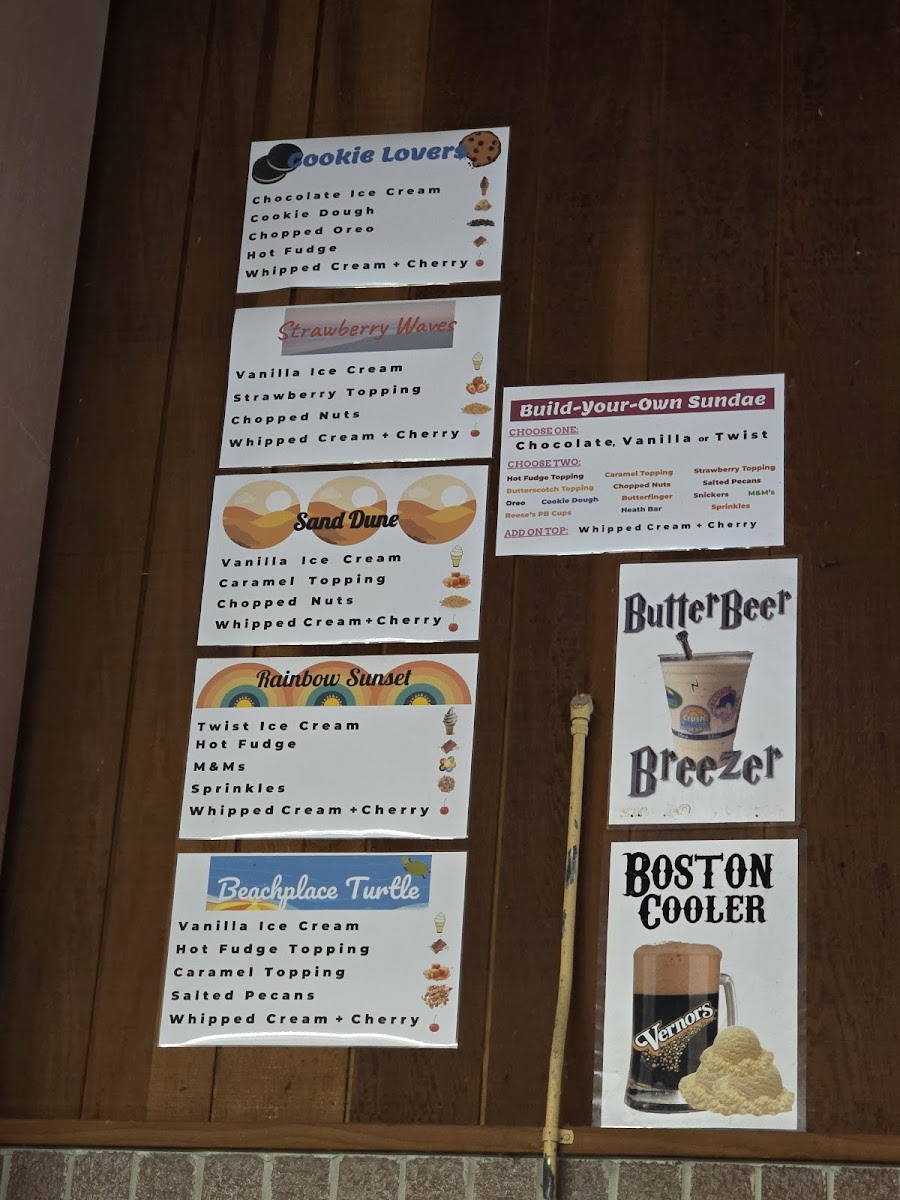 Cookie Lovers
Chocolate Ice Cream
Cookie Dough
Chopped Oreo
Hot Fudge
Whipped Cream + Cherry
Strawberry Waves
Vanilla Ice Cream
Strawberry Topping
Chopped Nuts
Whipped Cream + Cherry
Sand Dune
Vanilla Ice Cream
Caramel Topping
Chopped Nuts
Whipped Cream + Cherry
Rainbow Sunset
Twist Ice Cream
Hot Fudge
M&Ms
Sprinkles
Whipped Cream + Cherry
Beachplace Turtle
Vanilla Ice Cream
Hot Fudge Topping
Caramel Topping
Salted Pecans
Whipped Cream + Cherry
Build-Your-Own Sundae
CHOOSE ONE:
Chocolate, Vanilla or Twist
CHOOSE TWO:
Hot Fudge Topping Caramel Topping Strawberry Topping
Butterscotch Topping Chopped Nuts Salted Pecans
Oreo Cookie Dough Butterfinger Snickers M&M's
Reese's PB Cups Heath Bar Sprinkles
ADD ON TOP: Whipped Cream + Cherry
ButterBeer
Crush
Breezer
BOSTON
COOLER
Vernors